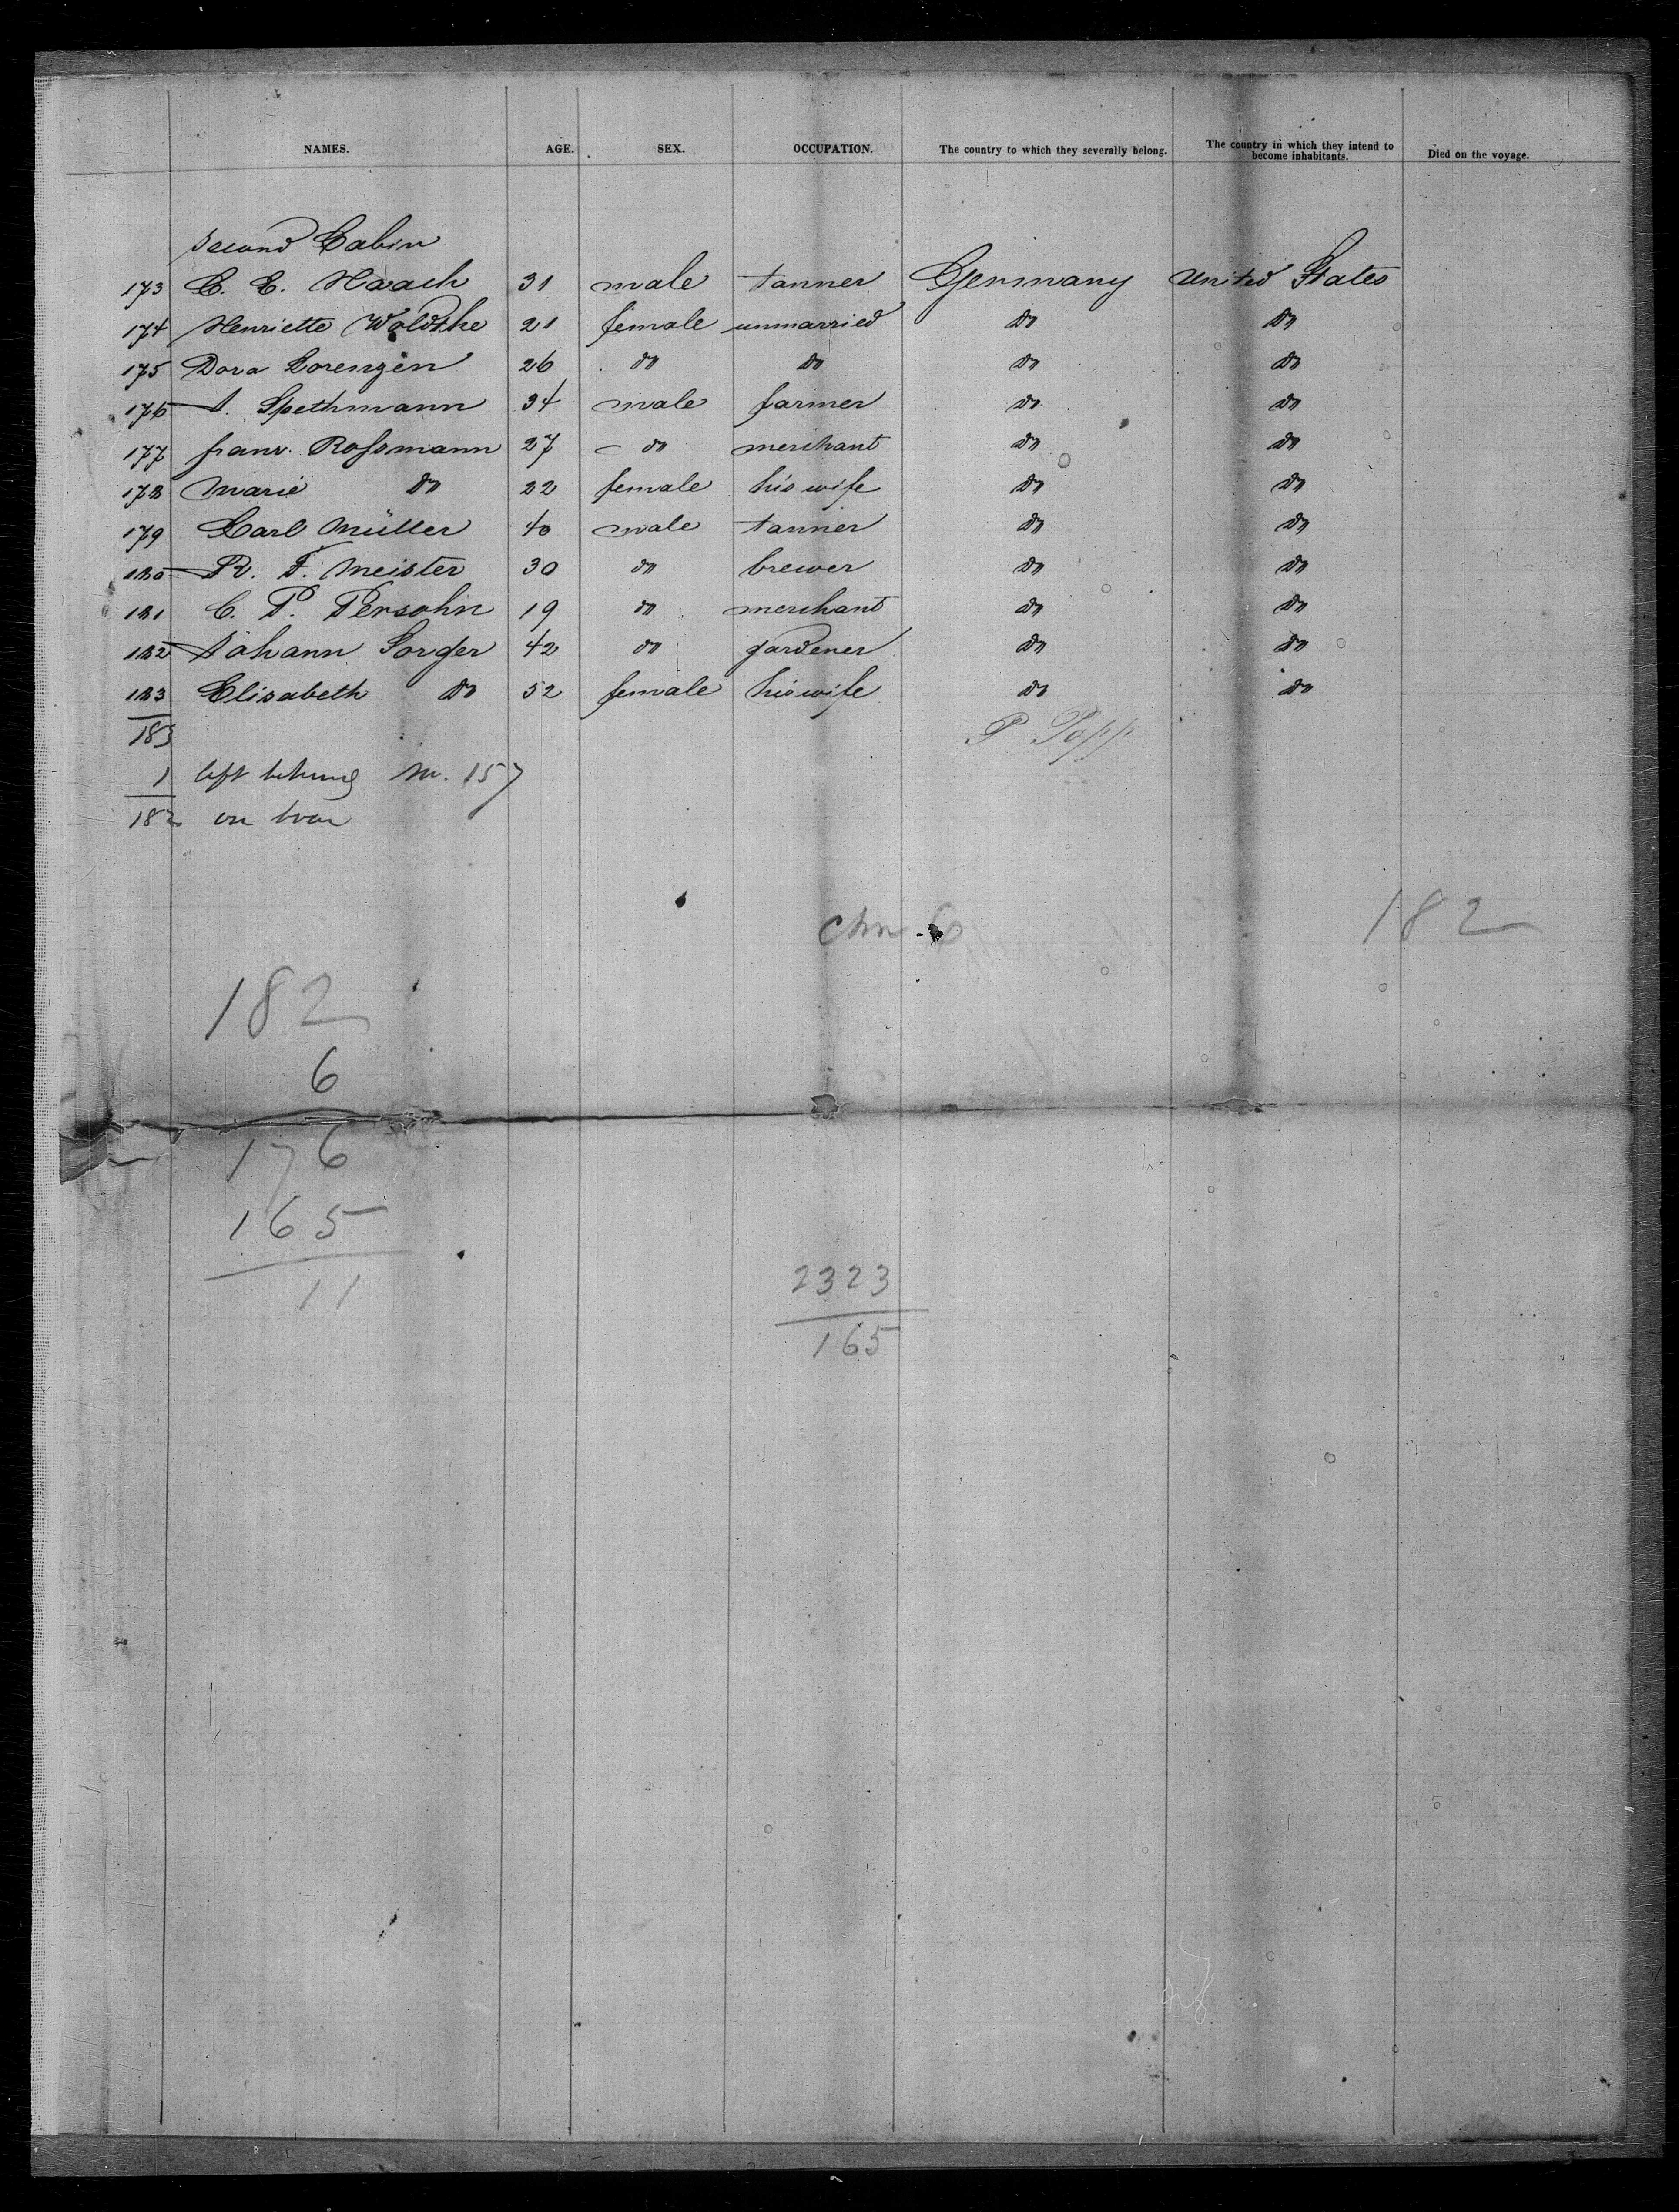 NAMES. AGE. SEX. OCCUPATION. The country to which they severally belong. The country in which they intend to become inhabitants. Died on the voyage.
Second Cabin
173 C. E. Haach 31 male tanner Germany United States
174 Henriette 21 female unmarried do do
175 Dora Lorenzen 26 do do do do
176 Spethmann 34 male farmer do do
177 Roſsmann 27 do merchant do do
178 Marie do 22 female his wife do do
179 Carl Müller 40 male tanner do do
180 R. F. Meister 30 do brewer do do
181 C. P. Persohn 19 do merchant do do
182 Johann Sorger 42 do gardener do do
183 Elisabeth do 52 female his wife do do
183 P Popp
1 left behind No. 157
182 on
182
182
6
176
165
11
2323
165